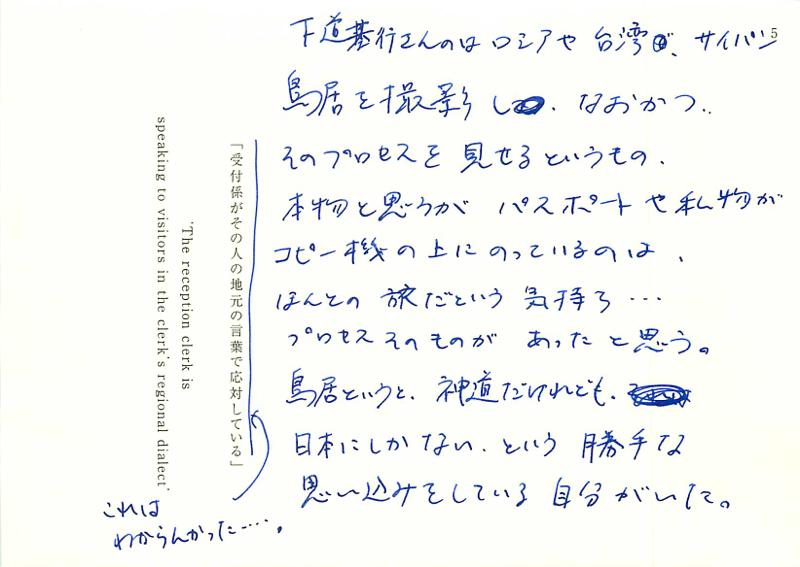 5
下道基行さんのは ロシアや 台湾、サイパン
鳥居を撮影し、なおかつ、
そのプロセスを見せるというもの、
本物と思うが パスポートや私物が
コピー機の上にのっているのは、
ほんとの旅だという 気持ち…
プロセスそのものが あったと思う。
鳥居というと、神道だけれども、
日本にしかない、という 勝手な
思い込みをしている 自分がいた。
「受付係がその人の地元の言葉で応対している」
'The reception clerk is
speaking to visitors in the clerk's regional dialect'
これは
わからんかった……。